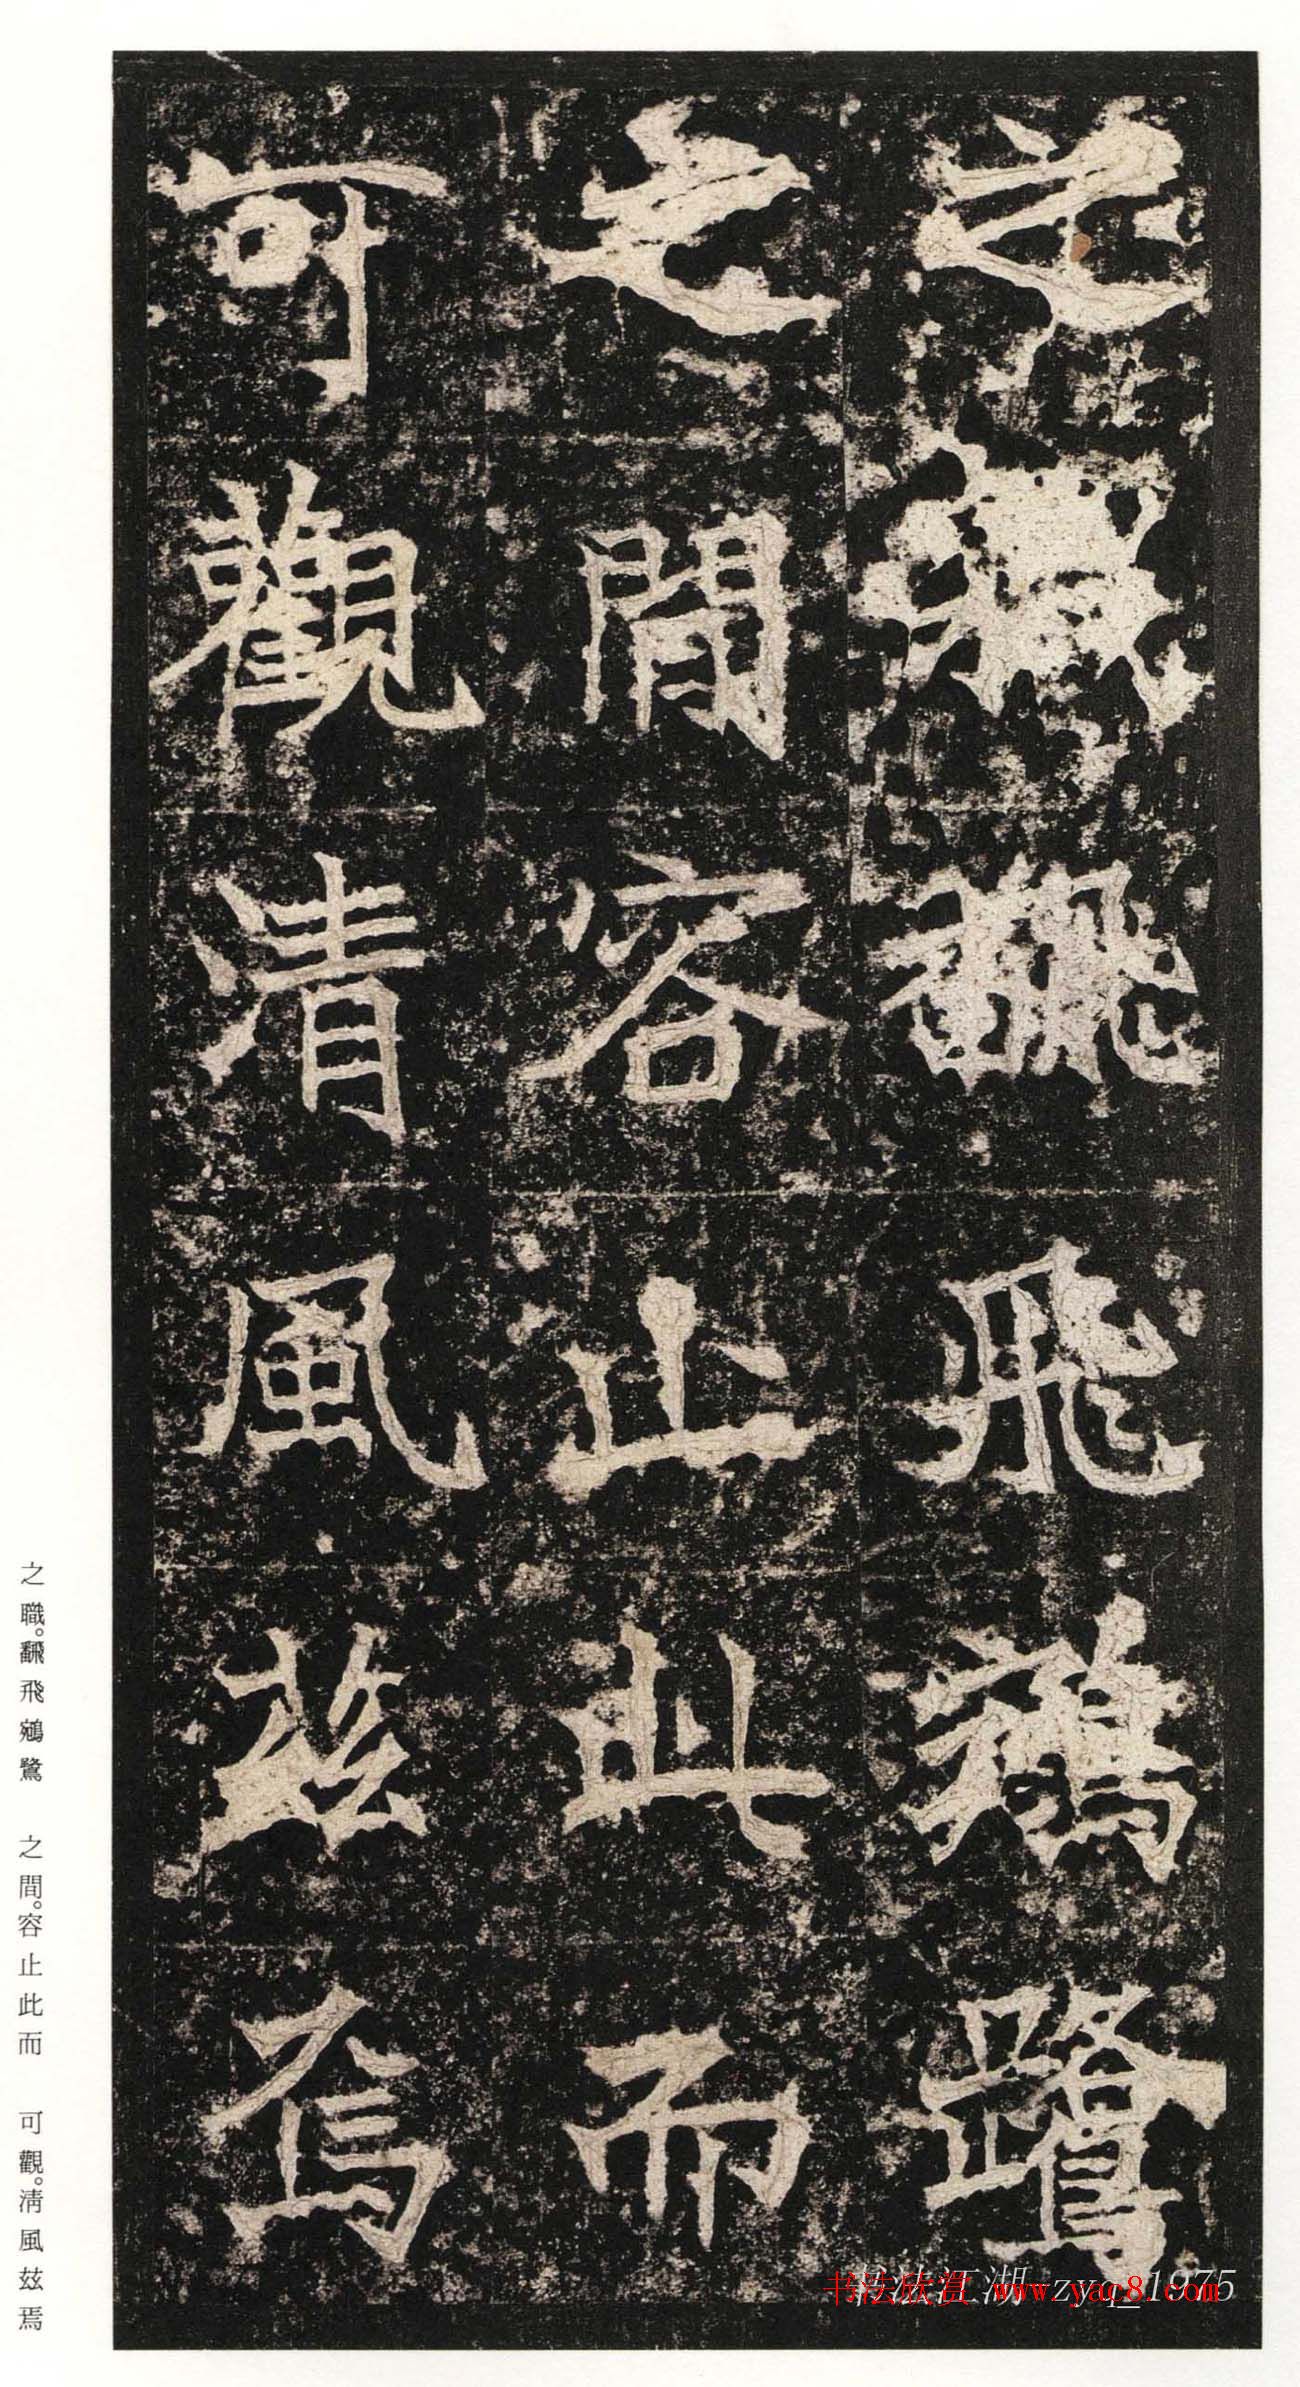 之職飜飛鵷鷺
之間容止此而
可觀清風茲焉
之職。飜飛鵷鷺 之間。容止此而 可觀。清風茲焉
书法欣赏 www.zyac8.com
江湖 1975